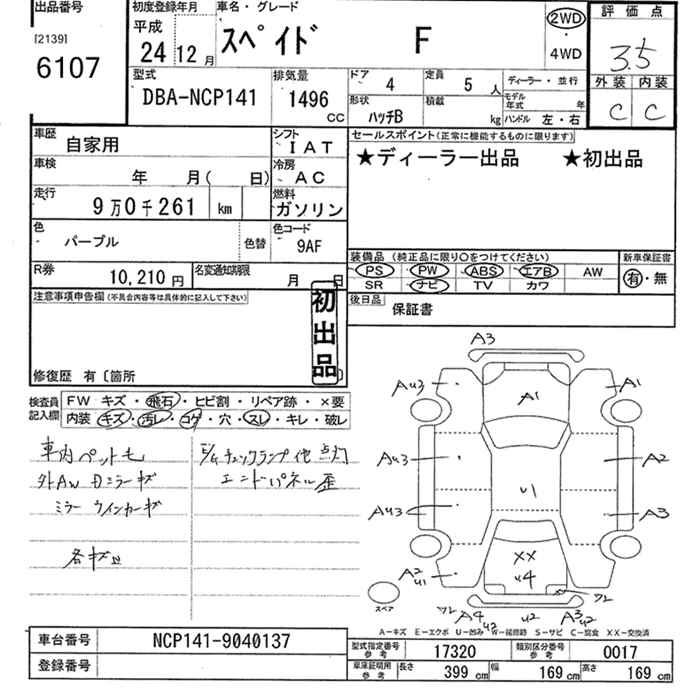 出品番号
[2139]
6107
初度登録年月
平成
24 12月
車名・グレード
スペイド F
2WD
・
4WD
評価点
3.5
外装 内装
C C
型式
DBA-NCP141
排気量
1496
CC
ドア 4
定員 5 人
ディーラー・並行
形状 ハッチB
積載 kg
モデル年式 年
ハンドル 左・右
車歴 自家用
シフト IAT
車検 年 月( 日)
冷房 AC
走行 9万0千261 km
燃料 ガソリン
色 パープル
色替
色コード 9AF
R券 10,210円
名変通知期限 月 日
セールスポイント(正常に機能するものに限ります)
★ディーラー出品 ★初出品
装備品(純正品に限り○をつけてください)
新車保証書
PS PW ABS エアB AW
SR ナビ TV カワ
有・無
後日品 保証書
注意事項申告欄(不具合内容等は具体的に記入して下さい)
初出品
修復歴 有〔箇所 〕
検査員記入欄
FW キズ・飛石・ヒビ割・リペア跡・×要
内装 キズ・汚レ・コゲ・穴・スレ・キレ・破レ
車内ペット毛
外AW Dミラーキズ
ミラーウインカーキズ
各キズ凹
エンジンチェックランプ他点灯
エンドパネル歪
A3
AU3 A1 A1
AU3 A2
U1
AU3 A3
A2
U1
XX
U4
ワレ
スペア
ワレ A4 U2 U2 A3 U2
A-キズ E-エクボ U-凹み W-補修跡 S-サビ C-腐食 XX-交換済
車台番号 NCP141-9040137
登録番号
型式指定番号参考 17320
類別区分番号参考 0017
車庫証明用参考 長さ 399 cm 幅 169 cm 高さ 169 cm